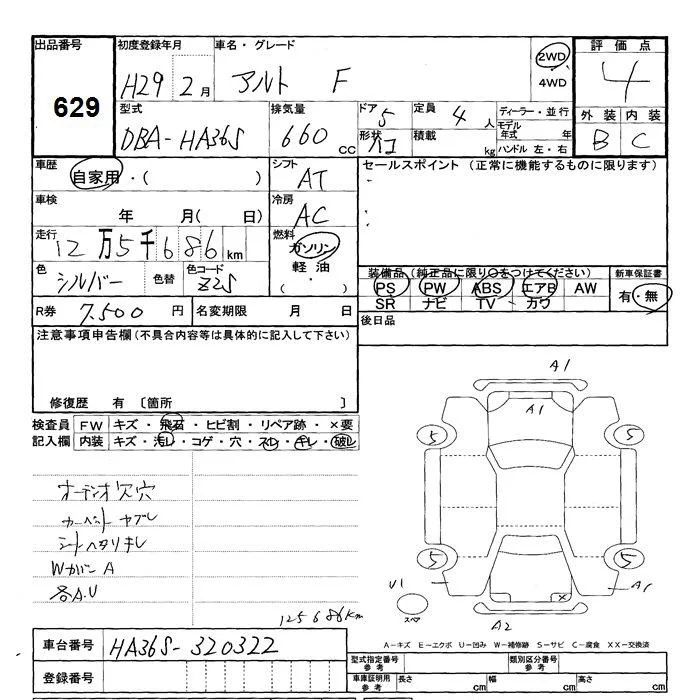 出品番号 初度登録年月 車名・グレード 2WD 評価点
629 H29 2月 アルト F 4WD 4
型式 排気量 ドア 5 定員 4人 ディーラー・並行 外装 内装
DBA-HA36S 660cc 形状 積載 kg モデル年式 年 ハンドル 左・右 B C
車歴 自家用・( ) シフト AT セールスポイント (正常に機能するものに限ります)
車検 年 月( 日) 冷房 AC
走行 12万5千686km 燃料 ガソリン
色 シルバー 色替 色コード Z2S 軽油 ・( )
装備品(純正品に限り○をつけてください) 新車保証書
PS PW ABS エアB AW 有・無
SR ナビ TV カワ
R券 7.500円 名変期限 月 日 後日品
注意事項申告欄(不具合内容等は具体的に記入して下さい)
修復歴 有 〔箇所 〕
検査員 FW キズ・飛石・ヒビ割・リペア跡・×要
記入欄 内装 キズ・汚レ・コゲ・穴・スレ・キレ・破レ
オーディオ欠穴
カーペット ヤブレ
シートヘタリキレ
Wカバー A
各A.U
125686km
A1
A1
5 5
5 5
V1 A1
スペア
A2
A-キズ E-エクボ U-凹み W-補修跡 S-サビ C-腐食 XX-交換済
車台番号 HA36S-320322
型式指定番号 参考 類別区分番号 参考
登録番号 車庫証明用 参考 長さ cm 幅 cm 高さ cm